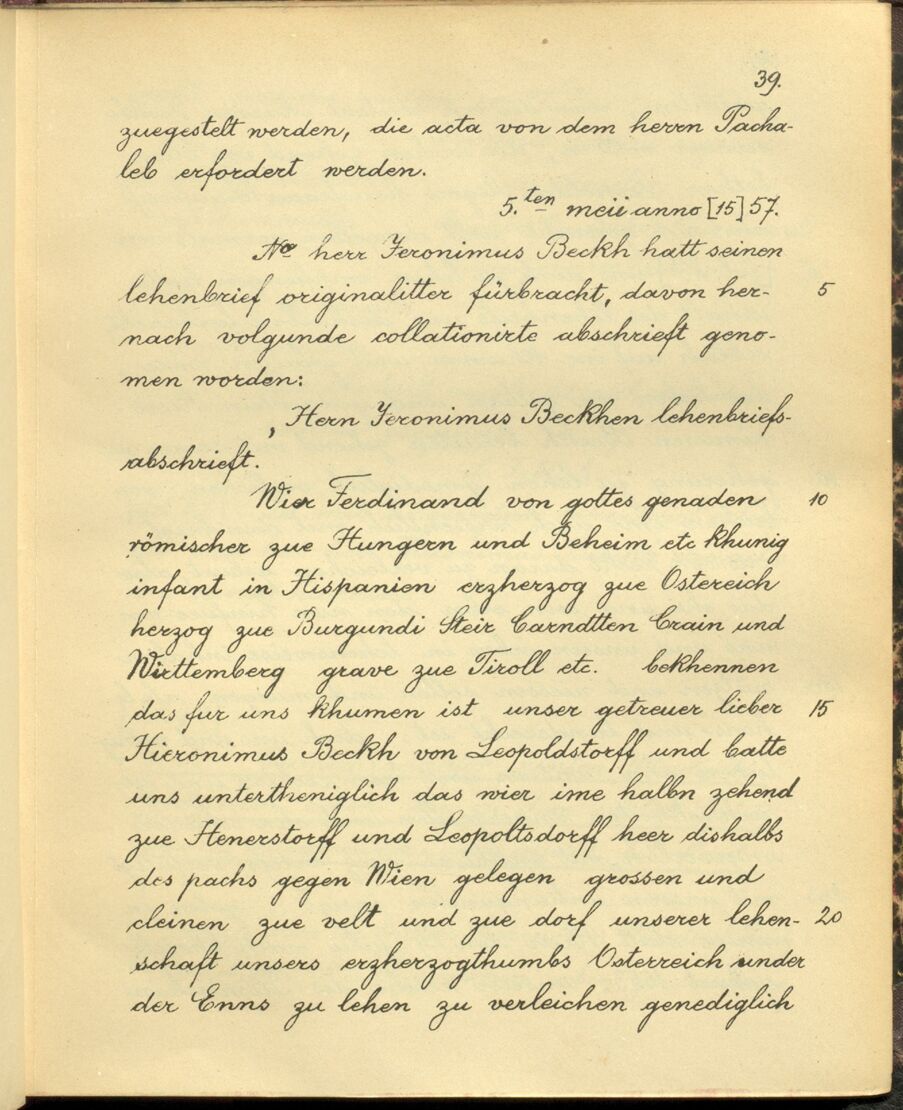 39.
zuegestelt werden, die acta von dem herrn Pacha-
leb erfordert werden.
5.ten meii anno [15]57.
Nco herr Jeronimus Beckh hatt seinen
lehenbrief originalitter fürbracht, davon her- 5
nach volgunde collationirte abschrieft geno-
men worden:
, Hern Jeronimus Beckhen lehenbriefs-
abschrieft.
Wier Ferdinand von gottes genaden 10
römischer zue Hungern und Beheim etc khunig
infant in Hispanien erzherzog zue Ostereich
herzog zue Burgundi Steir Carndtten Crain und
Wirttemberg grave zue Tiroll etc. bekhennen
das fur uns khumen ist unser getreuer lieber 15
Hieronimus Beckh von Leopoldstorff und batte
uns untertheniglich das wier ime halbn zehend
zue Henerstorff und Leopoltsdorff heer dishalbs
des pachs gegen Wien gelegen grossen und
cleinen zue velt und zue dorf unserer lehen- 20
schaft unsers erzherzogthumbs Osterreich under
der Enns zu lehen zu verleichen genediglich